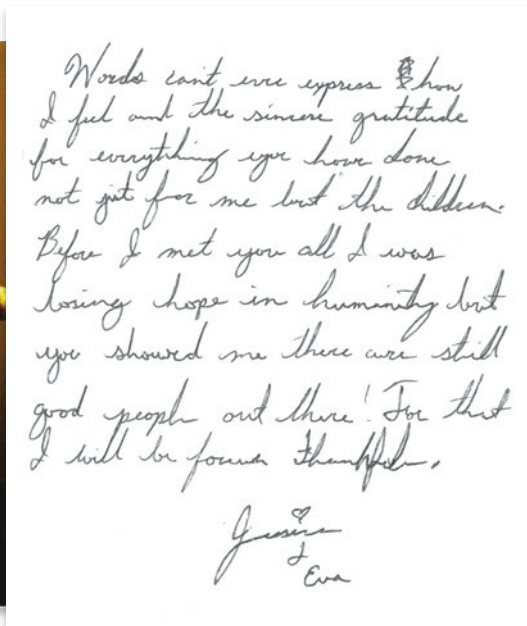 Words can't ever express how
I feel and the sincere gratitude
for everything you have done
not just for me but the children.
Before I met you all I was
losing hope in humanity but
you showed me there are still
good people out there! For that
I will be forever thankful.
Jessica
&
Eva